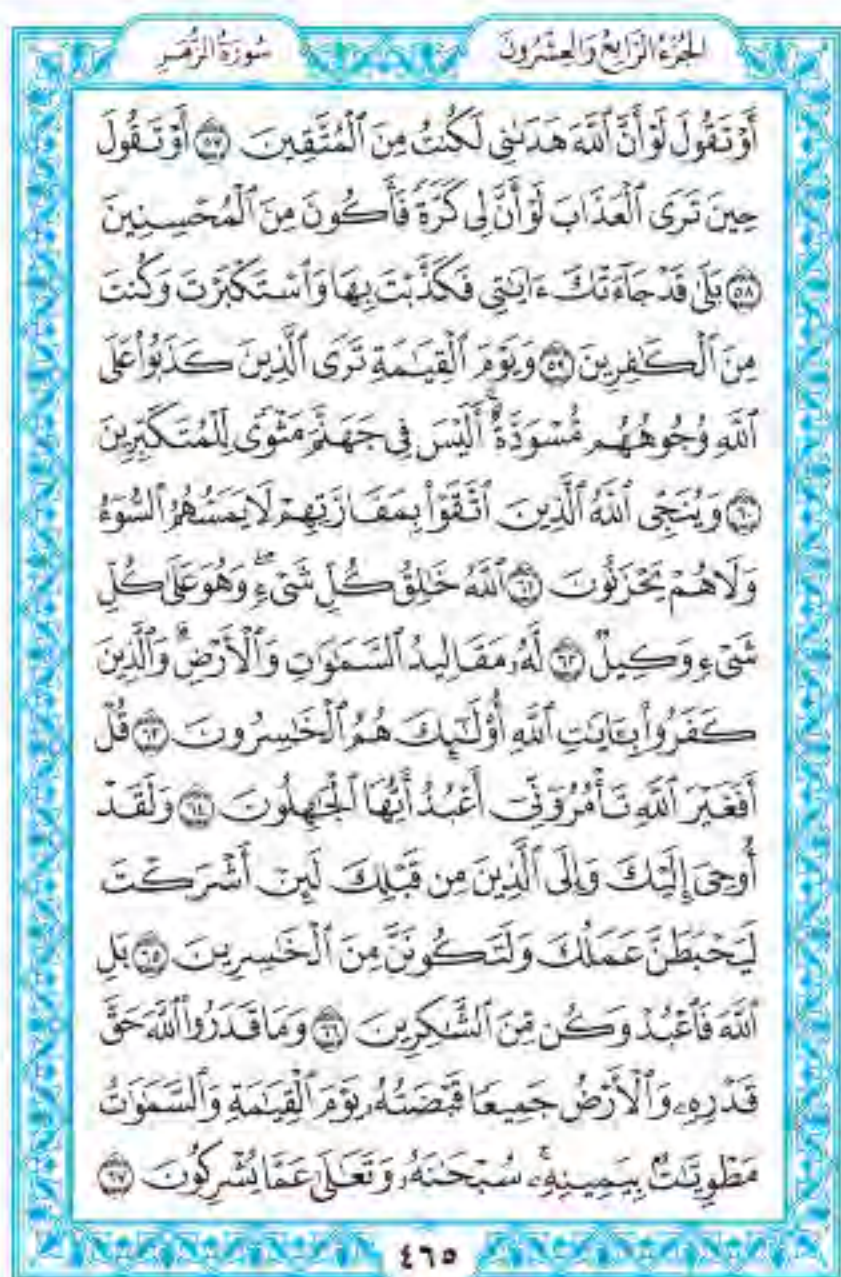 الجزء الرابع والعشرون
سورة الزمر
أَوْ تَقُولَ لَوْ أَنَّ ٱللَّهَ هَدَىٰنِي لَكُنتُ مِنَ ٱلْمُتَّقِينَ ٥٧ أَوْ تَقُولَ
حِينَ تَرَى ٱلْعَذَابَ لَوْ أَنَّ لِي كَرَّةً فَأَكُونَ مِنَ ٱلْمُحْسِنِينَ
٥٨ بَلَىٰ قَدْ جَآءَتْكَ ءَايَٰتِي فَكَذَّبْتَ بِهَا وَٱسْتَكْبَرْتَ وَكُنتَ
مِنَ ٱلْكَٰفِرِينَ ٥٩ وَيَوْمَ ٱلْقِيَٰمَةِ تَرَى ٱلَّذِينَ كَذَبُوا۟ عَلَى
ٱللَّهِ وُجُوهُهُم مُّسْوَدَّةٌ ۚ أَلَيْسَ فِي جَهَنَّمَ مَثْوًى لِّلْمُتَكَبِّرِينَ
٦٠ وَيُنَجِّي ٱللَّهُ ٱلَّذِينَ ٱتَّقَوْا۟ بِمَفَازَتِهِمْ لَا يَمَسُّهُمُ ٱلسُّوٓءُ
وَلَا هُمْ يَحْزَنُونَ ٦١ ٱللَّهُ خَٰلِقُ كُلِّ شَيْءٍ ۖ وَهُوَ عَلَىٰ كُلِّ
شَيْءٍ وَكِيلٌ ٦٢ لَّهُۥ مَقَالِيدُ ٱلسَّمَٰوَٰتِ وَٱلْأَرْضِ ۗ وَٱلَّذِينَ
كَفَرُوا۟ بِـَٔايَٰتِ ٱللَّهِ أُو۟لَٰٓئِكَ هُمُ ٱلْخَٰسِرُونَ ٦٣ قُلْ
أَفَغَيْرَ ٱللَّهِ تَأْمُرُوٓنِّيٓ أَعْبُدُ أَيُّهَا ٱلْجَٰهِلُونَ ٦٤ وَلَقَدْ
أُوحِيَ إِلَيْكَ وَإِلَى ٱلَّذِينَ مِن قَبْلِكَ لَئِنْ أَشْرَكْتَ
لَيَحْبَطَنَّ عَمَلُكَ وَلَتَكُونَنَّ مِنَ ٱلْخَٰسِرِينَ ٦٥ بَلِ
ٱللَّهَ فَٱعْبُدْ وَكُن مِّنَ ٱلشَّٰكِرِينَ ٦٦ وَمَا قَدَرُوا۟ ٱللَّهَ حَقَّ
قَدْرِهِۦ وَٱلْأَرْضُ جَمِيعًا قَبْضَتُهُۥ يَوْمَ ٱلْقِيَٰمَةِ وَٱلسَّمَٰوَٰتُ
مَطْوِيَّٰتٌۢ بِيَمِينِهِۦ ۚ سُبْحَٰنَهُۥ وَتَعَٰلَىٰ عَمَّا يُشْرِكُونَ ٦٧
٤٦٥